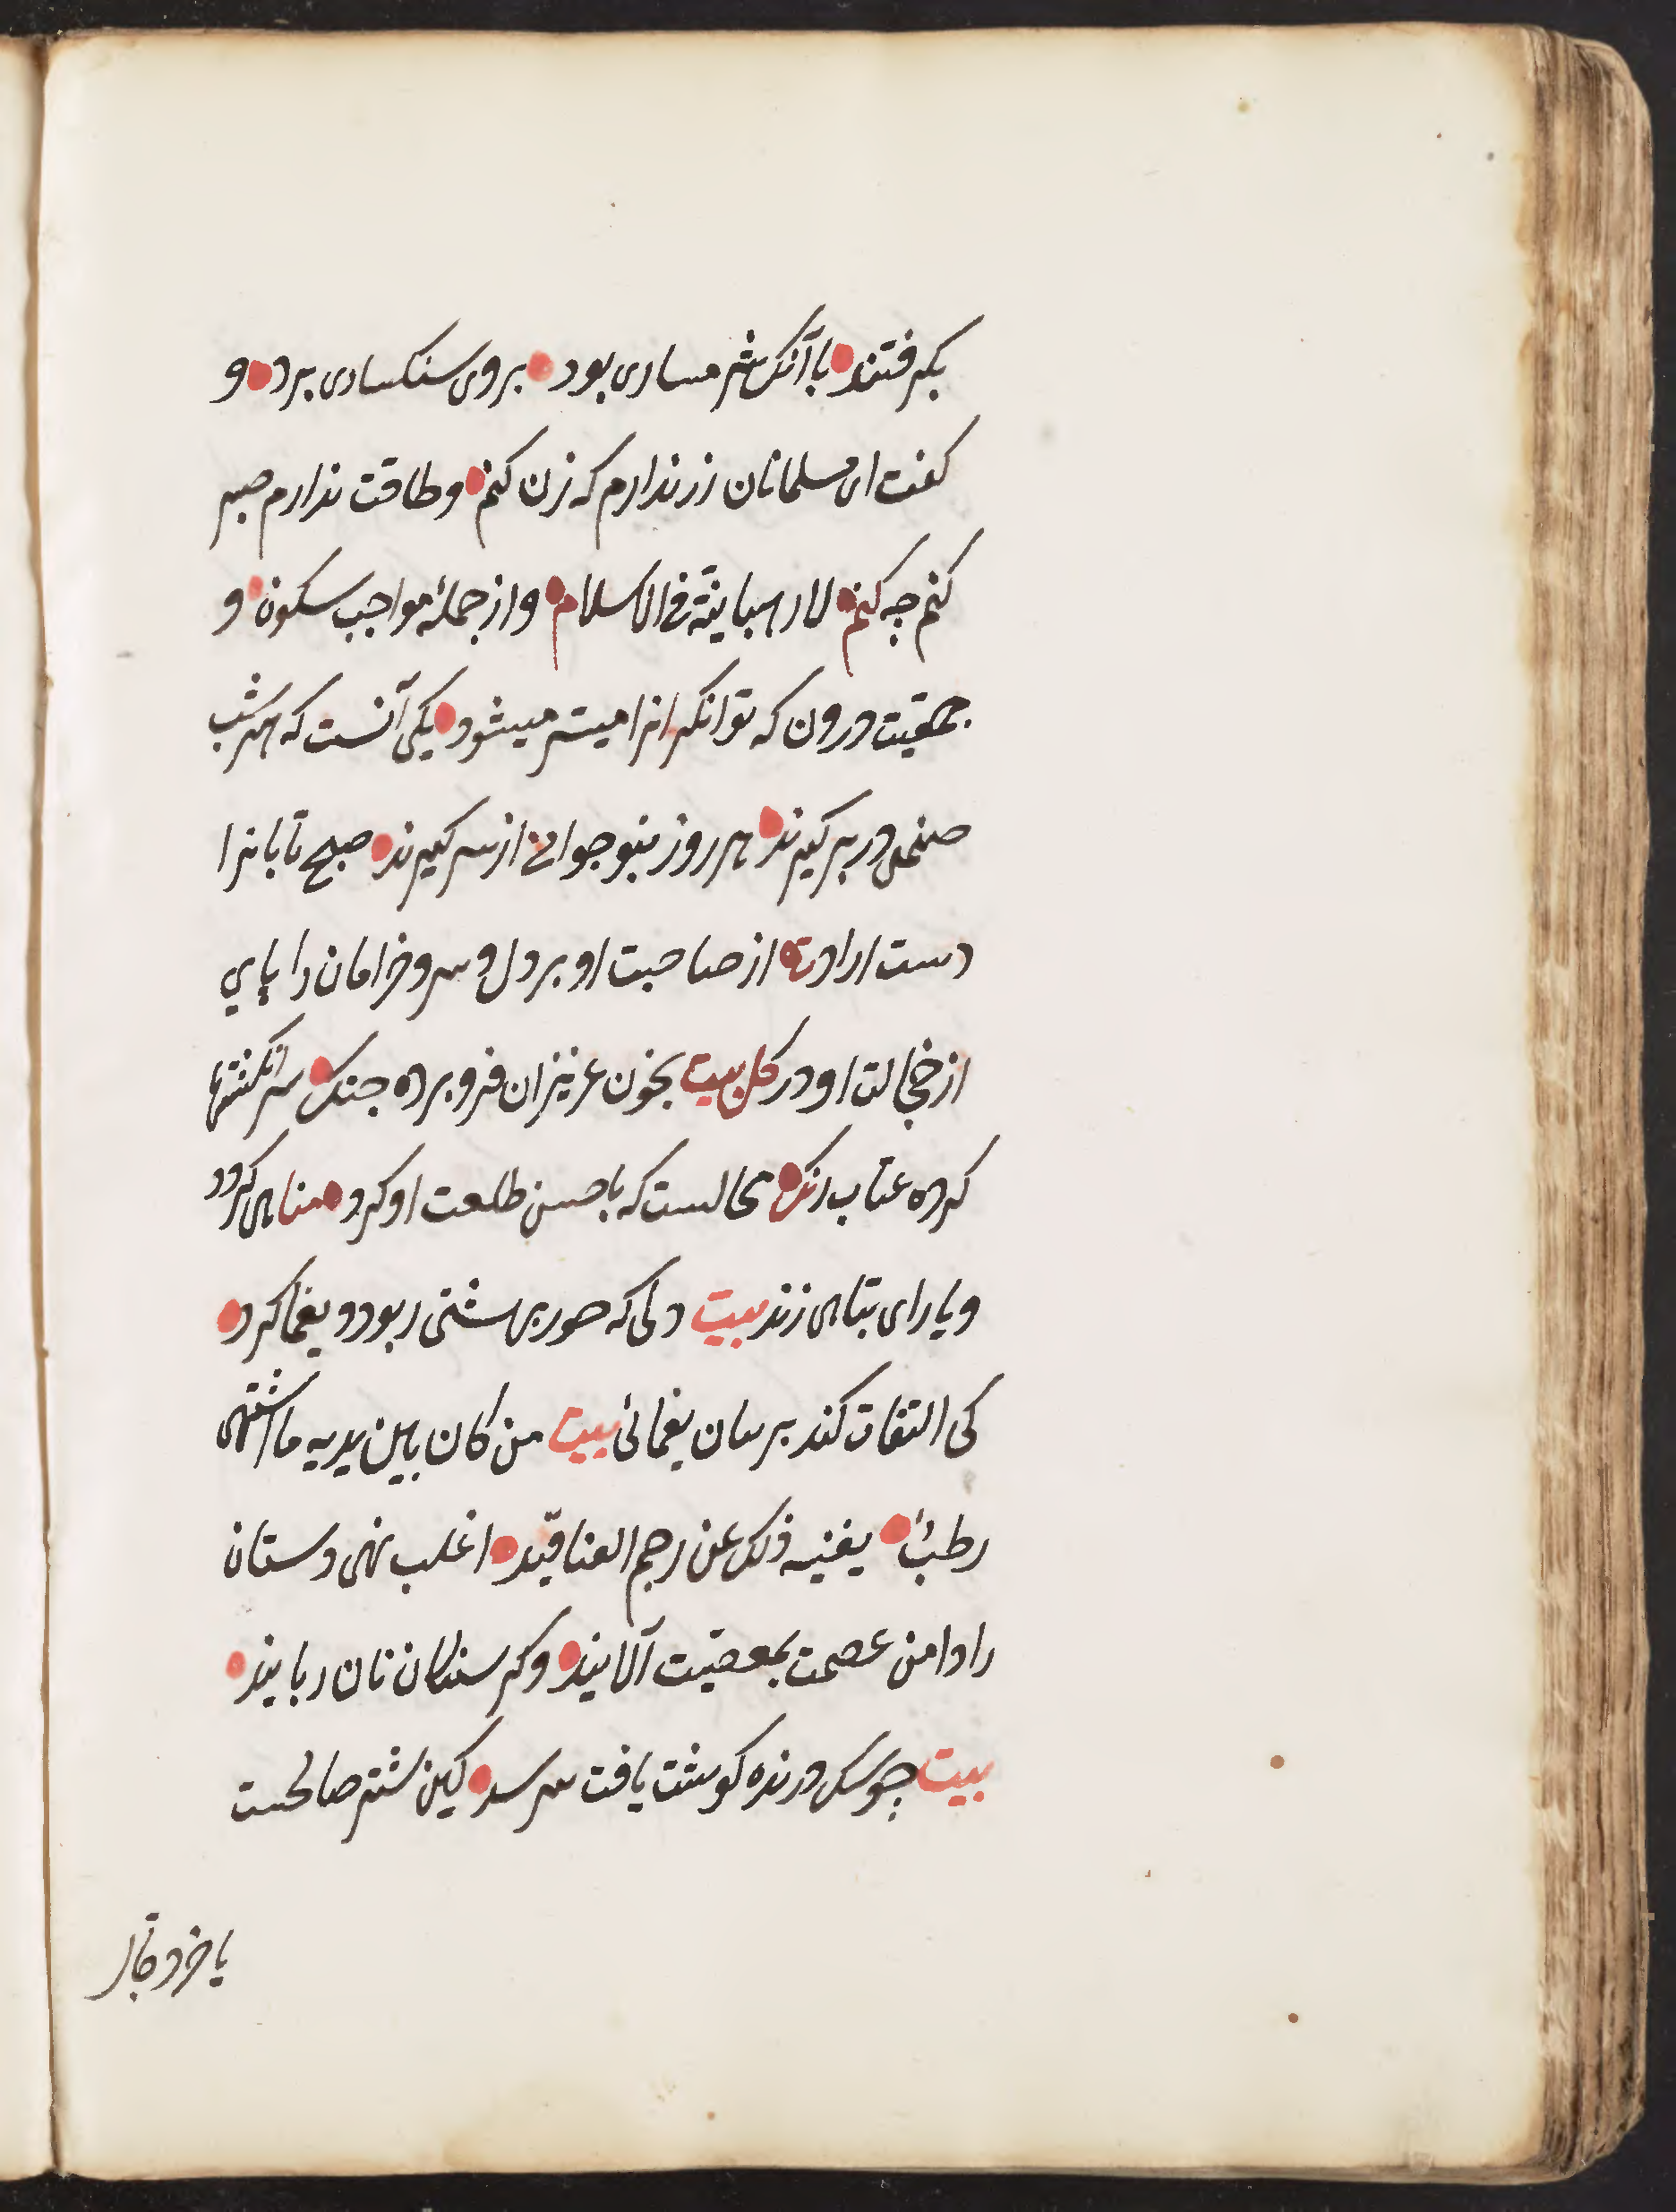 بگرفتند با آنکه شرمساری بود بروی سنکساری برد و
کفت ای مسلمانان زر ندارم که زن کنم و طاقت ندارم صبر
کنم چه کنم لا رهبانیة فی الاسلام و از جملهٔ مواجب سکون و
جمعیت درون که توانکر انرا میسر میشود یکی آنست که هر شب
صنمی در بر کیرند هر روز بنو جوانی از سر کیرند صبح تابانرا
دست ارادت از صاحبت او بر دل و سرو خرامان را پای
از خجالت او در کل بیت بخون عزیزان فرو برده جنک سر انکشتها
کرده عناب رنک محالست که با حسن طلعت او کرد مناهی کردد
و یا رای تباهی زند بیت دلی که حور بهشتی ربود و یغما کرد
کی التفات کند بر بتان یغمائی بیت من کان بین یدیه ما اشتهی
رطب یغنیه ذلک عن رجم العناقید اغلب تهی دستان
را دامن عصمت بمعصیت آلایند و کرسنکان نان ربایند
بیت چو سک درنده کوشت یافت نپرسد کین شتر صالحست
یا خر دجال